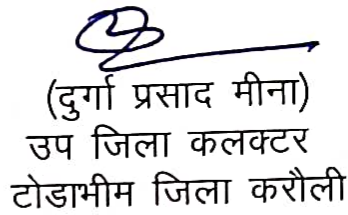 (दुर्गा प्रसाद मीना)
उप जिला कलक्टर
टोडाभीम जिला करौली